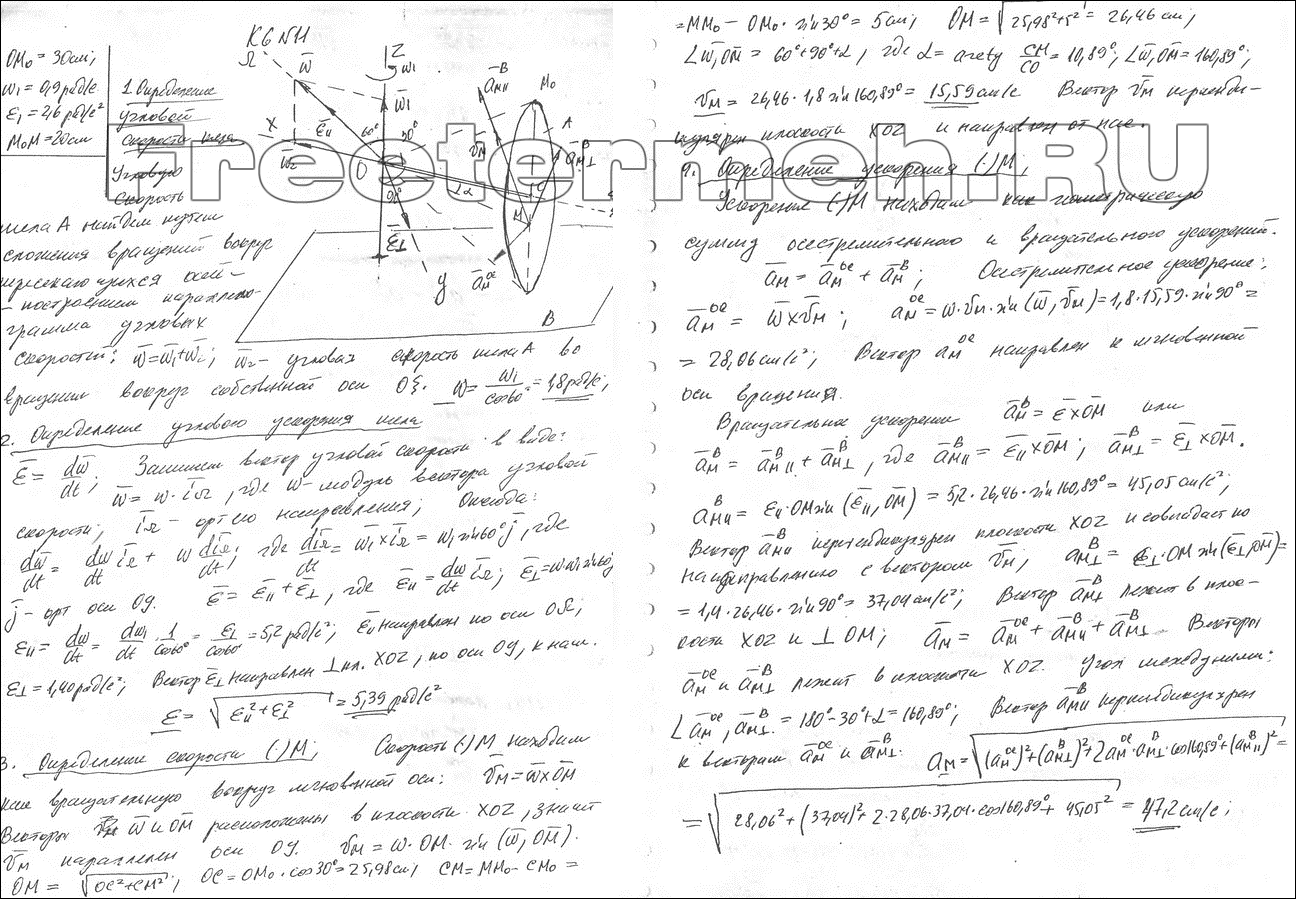 К6 NH
OM₀ = 30см;
ω₁ = 0,9 рад/с
ε₁ = 2,6 рад/с²
M₀M = 20см
1. Определение
угловой
скорости тела
Угловую
скорость
тела А найдем путем
сложения вращений вокруг
пересекающихся осей –
– построением паралело-
грамма угловых
скоростей: ω̄ = ω̄₁ + ω̄₂; ω̄₂ – угловая скорость тела А во
вращении вокруг собственной оси Oξ. ω = ω₁/cos60° = 1,8 рад/с;
2. Определение углового ускорения тела
ε̄ = dω̄/dt; Запишем вектор угловой скорости в виде:
ω̄ = ω · īΩ, где ω – модуль вектора угловой
скорости; īΩ – орт его направления; Отсюда:
dω̄/dt = dω/dt īΩ + ω dīΩ/dt; где dīΩ/dt = ω̄₁ × īΩ = ω₁ sin60° j̄, где
j̄ – орт оси Oy. ε̄ = ε̄∥ + ε̄⊥, где ε̄∥ = dω/dt īΩ; ε̄⊥ = ωω₁ sin60° j̄
ε∥ = dω/dt = dω₁/dt · 1/cos60° = ε₁/cos60° = 5,2 рад/с²; ε̄∥ направлен по оси OΩ;
ε⊥ = 1,40 рад/с²; Вектор ε̄⊥ направлен ⊥ пл. XOZ, по оси Oy, к нам.
ε = √(ε∥² + ε⊥²) = 5,39 рад/с²
3. Определение скорости (·)M; Скорость (·)M находим
как вращательную вокруг мгновенной оси: v̄M = ω̄ × O̅M̅
Векторы ω̄ и O̅M̅ расположены в плоскости XOZ, значит
v̄M параллелен оси Oy. vM = ω · OM · sin(ω̄, O̅M̅).
OM = √(OC² + CM²); OC = OM₀ · cos30° = 25,98см; CM = MM₀ – CM₀ =
Ω ω̄ Z ω₁ ω̄₁ āM∥ᴮ M₀
X ε̄∥ 60° 30° v̄M A
ω̄₂ O āM⊥ᴮ
α C
90° M
ε̄⊥
y āMᵒᶜ
B
= MM₀ – OM₀ · sin30° = 5см; OM = √(25,98² + 5²) = 26,46 см;
∠ω̄, O̅M̅ = 60° + 90° + α, где α = arctg CM/CO = 10,89°; ∠ω̄, O̅M̅ = 160,89°;
vM = 26,46 · 1,8 sin160,89° = 15,59 см/с Вектор v̄M перпенди-
кулярен плоскости XOZ и направлен от нас.
4. Определение ускорения (·)M;
Ускорение (·)M находим как геометрическую
сумму осестремительного и вращательного ускорений.
āM = āMᵒᶜ + āMᴮ; Осестремительное ускорение:
āMᵒᶜ = ω̄ × v̄M; aMᵒᶜ = ω · vM · sin(ω̄, v̄M) = 1,8 · 15,59 · sin90° =
= 28,06 см/с²; Вектор aMᵒᶜ направлен к мгновенной
оси вращения.
Вращательное ускорение āMᴮ = ε̄ × O̅M̅ или
āMᴮ = āM∥ᴮ + āM⊥ᴮ, где āM∥ᴮ = ε̄∥ × O̅M̅; āM⊥ᴮ = ε̄⊥ × O̅M̅.
aM∥ᴮ = ε∥ · OM sin(ε̄∥, O̅M̅) = 5,2 · 26,46 · sin160,89° = 45,05 см/с²;
Вектор āM∥ᴮ перпендикулярен плоскости XOZ и совпадает по
направлению с вектором v̄M; aM⊥ᴮ = ε⊥ · OM sin(ε̄⊥, O̅M̅) =
= 1,4 · 26,46 · sin90° = 37,04 см/с²; Вектор āM⊥ᴮ лежит в плос-
кости XOZ и ⊥ OM; āM = āMᵒᶜ + āM∥ᴮ + āM⊥ᴮ. Векторы
āMᵒᶜ и āM⊥ᴮ лежат в плоскости XOZ. Угол между ними:
∠āMᵒᶜ, āM⊥ᴮ = 180° – 30° + α = 160,89°; Вектор āM∥ᴮ перпендикулярен
к векторам āMᵒᶜ и āM⊥ᴮ. aM = √((aMᵒᶜ)² + (aM⊥ᴮ)² + 2aMᵒᶜ · aM⊥ᴮ · cos160,89° + (aM∥ᴮ)²) =
= √(28,06² + (37,04)² + 2 · 28,06 · 37,04 · cos160,89° + 45,05²) = 47,2 см/с;
Freetermeh.RU